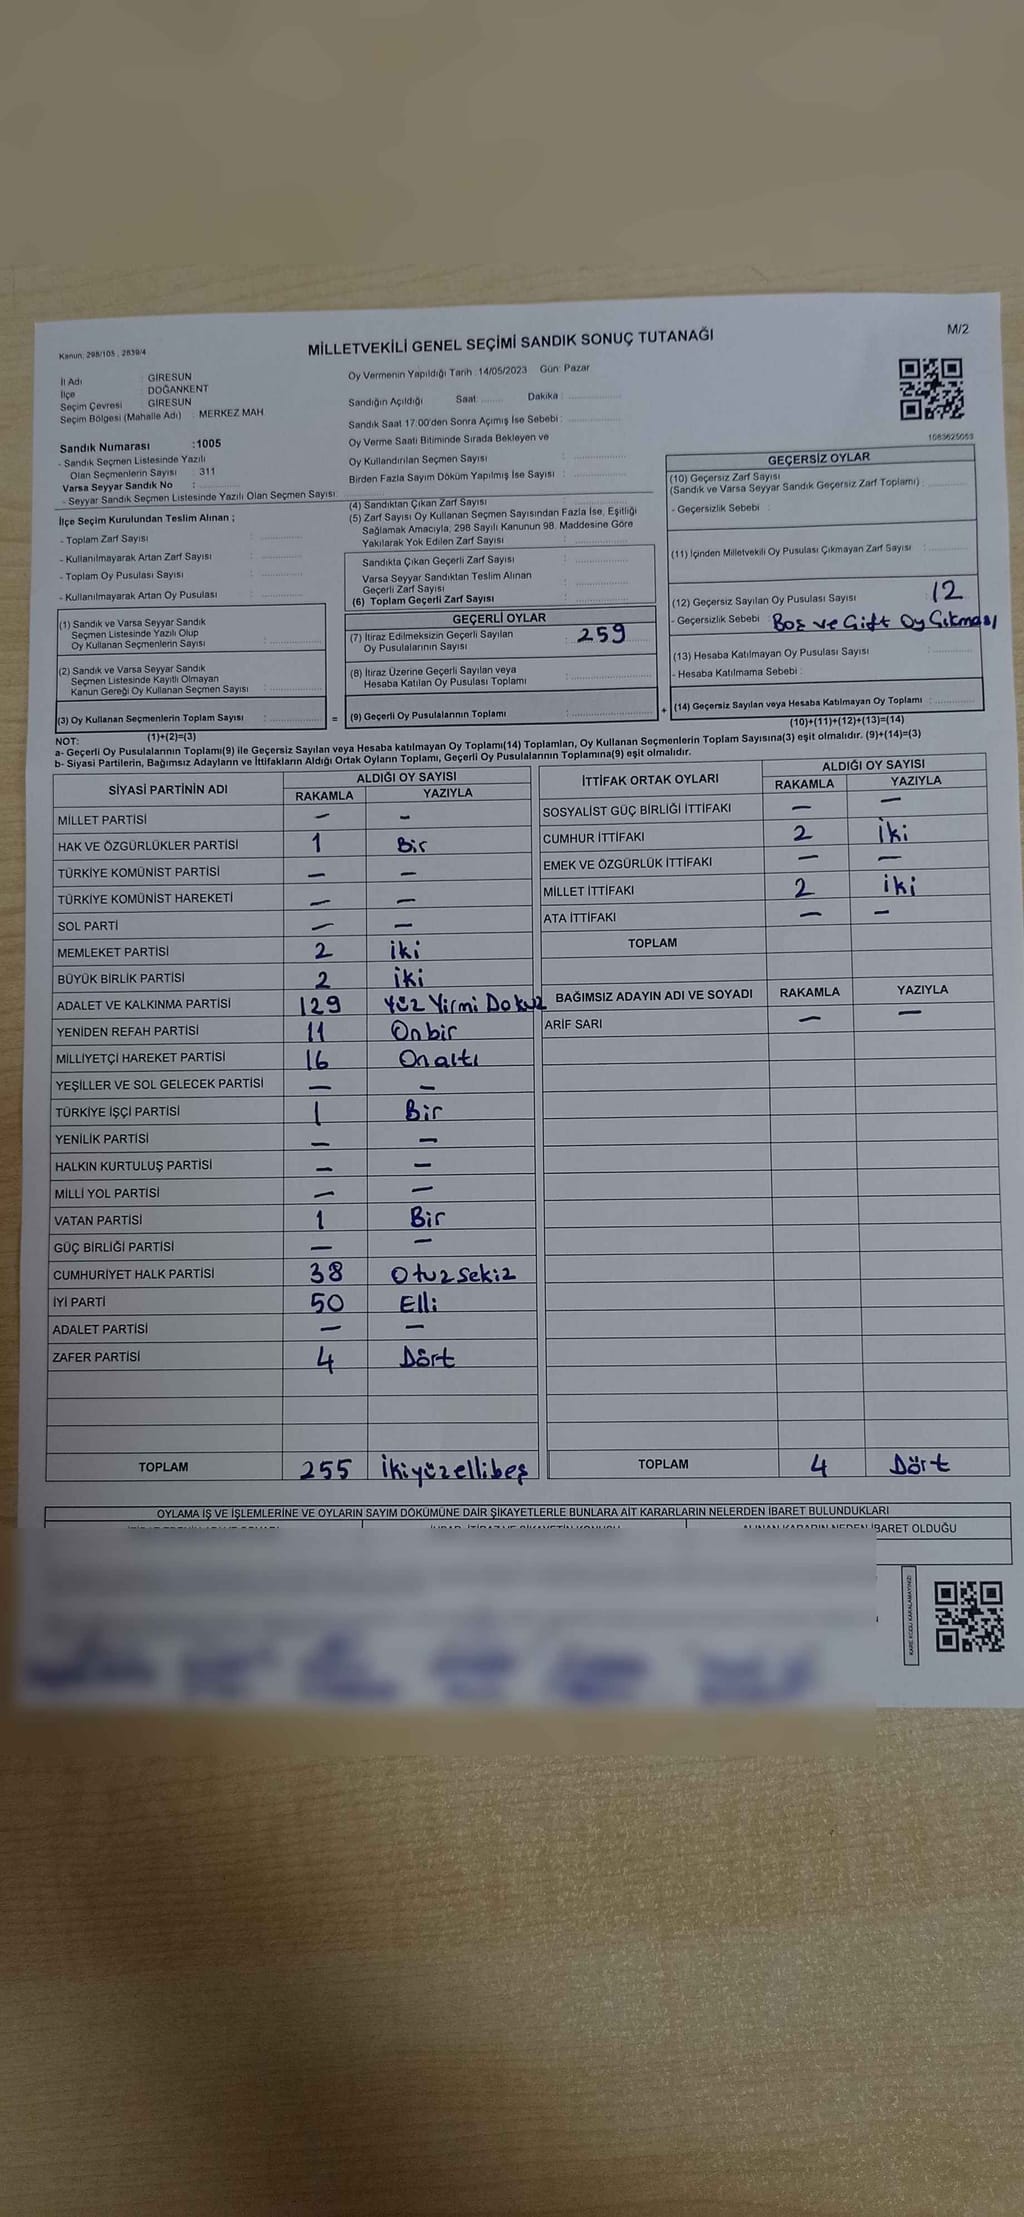 Kanun: 298/105 , 2839/4
MİLLETVEKİLİ GENEL SEÇİMİ SANDIK SONUÇ TUTANAĞI
M/2
İl Adı : GİRESUN
İlçe : DOĞANKENT
Seçim Çevresi : GİRESUN
Seçim Bölgesi (Mahalle Adı) : MERKEZ MAH
Sandık Numarası :1005
- Sandık Seçmen Listesinde Yazılı
Olan Seçmenlerin Sayısı : 311
Varsa Seyyar Sandık No :
- Seyyar Sandık Seçmen Listesinde Yazılı Olan Seçmen Sayısı:
İlçe Seçim Kurulundan Teslim Alınan ;
- Toplam Zarf Sayısı :
- Kullanılmayarak Artan Zarf Sayısı :
- Toplam Oy Pusulası Sayısı :
- Kullanılmayarak Artan Oy Pusulası :
(1) Sandık ve Varsa Seyyar Sandık
Seçmen Listesinde Yazılı Olup
Oy Kullanan Seçmenlerin Sayısı :
(2) Sandık ve Varsa Seyyar Sandık
Seçmen Listesinde Kayıtlı Olmayan
Kanun Gereği Oy Kullanan Seçmen Sayısı :
(3) Oy Kullanan Seçmenlerin Toplam Sayısı :
(1)+(2)=(3)
Oy Vermenin Yapıldığı Tarih :14/05/2023 Gün: Pazar
Sandığın Açıldığı Saat: Dakika :
Sandık Saat 17:00'den Sonra Açımış İse Sebebi :
Oy Verme Saati Bitiminde Sırada Bekleyen ve
Oy Kullandırılan Seçmen Sayısı :
Birden Fazla Sayım Döküm Yapılmış İse Sayısı :
(4) Sandıktan Çıkan Zarf Sayısı :
(5) Zarf Sayısı Oy Kullanan Seçmen Sayısından Fazla İse, Eşitliği
Sağlamak Amacıyla, 298 Sayılı Kanunun 98. Maddesine Göre
Yakılarak Yok Edilen Zarf Sayısı :
Sandıkta Çıkan Geçerli Zarf Sayısı :
Varsa Seyyar Sandıktan Teslim Alınan
Geçerli Zarf Sayısı :
(6) Toplam Geçerli Zarf Sayısı :
GEÇERLİ OYLAR
(7) İtiraz Edilmeksizin Geçerli Sayılan
Oy Pusulalarının Sayısı : 259
(8) İtiraz Üzerine Geçerli Sayılan veya
Hesaba Katılan Oy Pusulası Toplamı :
= (9) Geçerli Oy Pusulalarının Toplamı : +
1083625053
GEÇERSİZ OYLAR
(10) Geçersiz Zarf Sayısı
(Sandık ve Varsa Seyyar Sandık Geçersiz Zarf Toplamı) :
- Geçersizlik Sebebi :
(11) İçinden Milletvekili Oy Pusulası Çıkmayan Zarf Sayısı :
(12) Geçersiz Sayılan Oy Pusulası Sayısı : 12
- Geçersizlik Sebebi : Boş ve Çift Oy Çıkması
(13) Hesaba Katılmayan Oy Pusulası Sayısı :
- Hesaba Katılmama Sebebi :
(14) Geçersiz Sayılan veya Hesaba Katılmayan Oy Toplamı :
(10)+(11)+(12)+(13)=(14)
NOT:
a- Geçerli Oy Pusulalarının Toplamı(9) ile Geçersiz Sayılan veya Hesaba katılmayan Oy Toplamı(14) Toplamları, Oy Kullanan Seçmenlerin Toplam Sayısına(3) eşit olmalıdır. (9)+(14)=(3)
b- Siyasi Partilerin, Bağımsız Adayların ve İttifakların Aldığı Ortak Oyların Toplamı, Geçerli Oy Pusulalarının Toplamına(9) eşit olmalıdır.
SİYASİ PARTİNİN ADI ALDIĞI OY SAYISI
RAKAMLA YAZIYLA
MİLLET PARTİSİ — —
HAK VE ÖZGÜRLÜKLER PARTİSİ 1 Bir
TÜRKİYE KOMÜNİST PARTİSİ — —
TÜRKİYE KOMÜNİST HAREKETİ — —
SOL PARTİ — —
MEMLEKET PARTİSİ 2 iki
BÜYÜK BİRLİK PARTİSİ 2 iki
ADALET VE KALKINMA PARTİSİ 129 Yüz Yirmi Dokuz
YENİDEN REFAH PARTİSİ 11 Onbir
MİLLİYETÇİ HAREKET PARTİSİ 16 Onaltı
YEŞİLLER VE SOL GELECEK PARTİSİ — —
TÜRKİYE İŞÇİ PARTİSİ 1 Bir
YENİLİK PARTİSİ — —
HALKIN KURTULUŞ PARTİSİ — —
MİLLİ YOL PARTİSİ — —
VATAN PARTİSİ 1 Bir
GÜÇ BİRLİĞİ PARTİSİ — —
CUMHURİYET HALK PARTİSİ 38 Otuzsekiz
İYİ PARTİ 50 Elli
ADALET PARTİSİ — —
ZAFER PARTİSİ 4 Dört
TOPLAM 255 İkiyüzellibeş
İTTİFAK ORTAK OYLARI ALDIĞI OY SAYISI
RAKAMLA YAZIYLA
SOSYALİST GÜÇ BİRLİĞİ İTTİFAKI — —
CUMHUR İTTİFAKI 2 İki
EMEK VE ÖZGÜRLÜK İTTİFAKI — —
MİLLET İTTİFAKI 2 iki
ATA İTTİFAKI — —
TOPLAM
BAĞIMSIZ ADAYIN ADI VE SOYADI RAKAMLA YAZIYLA
ARİF SARI — —
TOPLAM 4 Dört
OYLAMA İŞ VE İŞLEMLERİNE VE OYLARIN SAYIM DÖKÜMÜNE DAİR ŞİKAYETLERLE BUNLARA AİT KARARLARIN NELERDEN İBARET BULUNDUKLARI
ALINAN KARARIN NEDEN İBARET OLDUĞU
KARE KODU KARALAMAYINIZ!